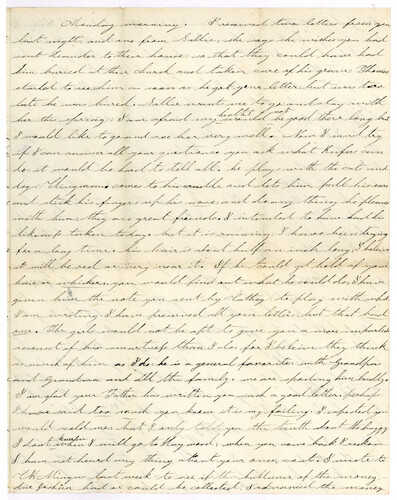 Monday morning. I received two letters from you
last night, and one from Sallie, she says she wishes you had
sent Leander to their house, so that they could have had
him buried at their church and taken care of his grave. Thomas
started to see him as soon as he got your letter but was too
late he was buried. Sallie wants me to go and stay with
her this spring. I am afraid my health would not be good there long but
I would like to go and see her very well. Now I will try
if I can answer all your questions you ask what Rufus can
do, it would be hard to tell all. he plays with the cats and
dog comes to his cradle and lets him pull his ears
and stick his fingers up his nose and do any thing he pleases
with him, they are great friends. I intended to have had his
likeness taken today but it is raining. I have been trying
for a long time. his hair is about half an inch long, I believe
it will be red or very near it. If he could get hold of your
hair or whiskers, you would find out what he could do. I have
given him the note you sent by to play with while
I am writing, I have preserved all your letters but that
one. The girls would not be apt to give you a more impartial
account of him than I do for I believe they think
as much of him as I do he is a general favorite with Grandpa
and Grandma and all the family. we are spoiling him badly.
I am glad your Father has written you such a good letter. perhaps
I have said too much you know it is my failing. I expected you
would scold me but I only told you the truth about
I dont know when I will go to Haywood, when you come back I reckon
I have not heard any thing about your cow, I wrote to
last week to see if the ballance of the money
due had or could be collected. I the money